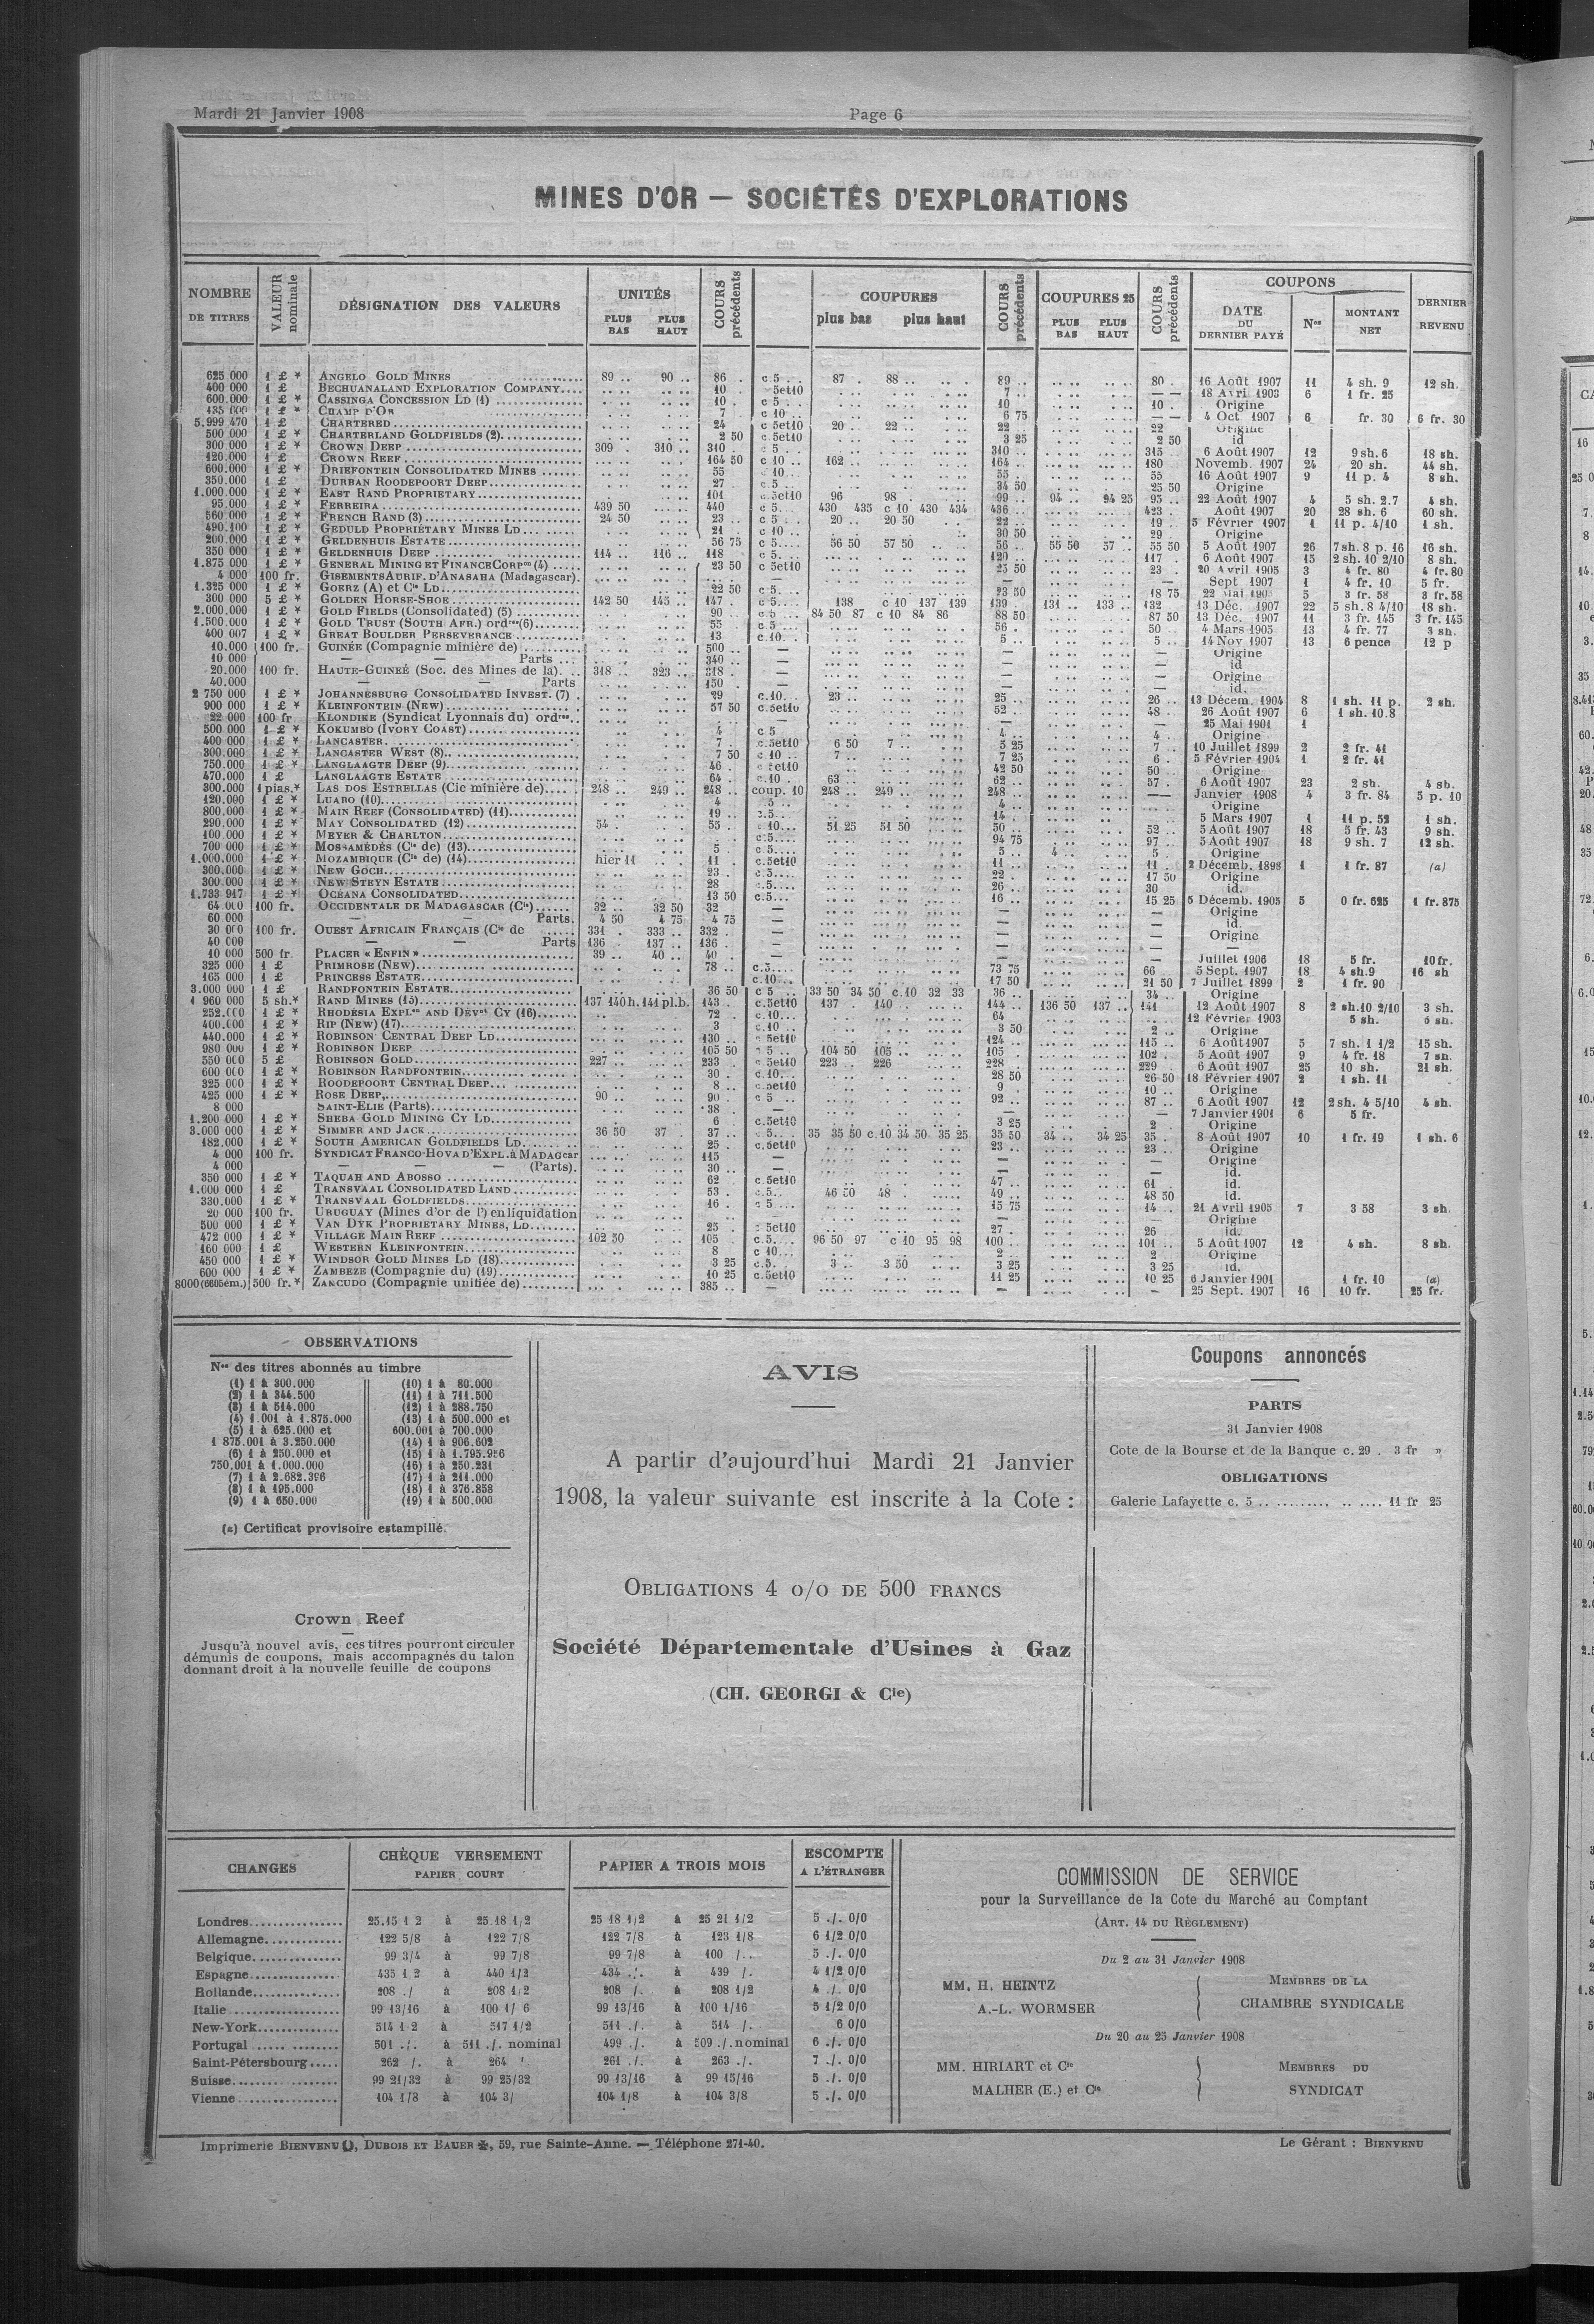 Mardi 21 Janvier 1908
Page 6
MINES D'OR — SOCIÉTÉS D'EXPLORATIONS
NOMBRE DE TITRES | VALEUR nominale | DÉSIGNATION DES VALEURS | UNITÉS PLUS BAS PLUS HAUT | COURS précédents | COUPURES plus bas plus haut | COURS précédents | COUPURES 25 PLUS BAS PLUS HAUT | COURS précédents | COUPONS DATE DU DERNIER PAYÉ | Nos | MONTANT NET | DERNIER REVENU
625 000 1 £ * ANGELO GOLD MINES 89 .. 90 .. 86 . c.5 .. 87 . 88 .. 89 .. 80 . 16 Août 1907 11 4 sh. 9 12 sh.
400 000 1 £ BECHUANALAND EXPLORATION COMPANY 10 . 5et10 7 .. — — 18 Avril 1903 6 1 fr. 25
600.000 1 £ * CASSINGA CONCESSION LD (1) 10 . c 5 .. 10 10 . Origine
435 000 1 £ * CHAMP D'OR 7 c 10 .. 6 75 — — 4 Oct 1907 6 fr. 30 6 fr. 30
5.999 470 1 £ CHARTERED 24 c 5et10 20 .. 22 .. 22 .. 22 Origine
500 000 1 £ * CHARTERLAND GOLDFIELDS (2) 2 50 c.5et10 3 25 2 50 id
300 000 1 £ * CROWN DEEP 309 . 310 .. 310 . c 5 .. 310 .. 315 . 6 Août 1907 12 9 sh. 6 18 sh.
120.000 1 £ CROWN REEF 164 50 c 10 .. 162 .. 164 .. 180 Novemb. 1907 24 20 sh. 44 sh.
600.000 1 £ * DRIEFONTEIN CONSOLIDATED MINES 55 10.. 55 .. 55 16 Août 1907 9 11 p. 4 8 sh.
350.000 1 £ DURBAN ROODEPOORT DEEP 27 c.5.. 34 50 25 50 Origine
1.000.000 1 £ * EAST RAND PROPRIETARY 101 c.5et10 96 98 . 99 .. 94 .. 94 25 95 .. 22 Août 1907 4 5 sh. 2.7 4 sh.
95.000 1 £ * FERREIRA 439 50 440 c 5. 430 435 c 10 430 434 436 .. 423 . Août 1907 20 28 sh. 6 60 sh.
560 000 1 £ * FRENCH RAND (3) 24 50 23 .. c 5 .. 20 .. 20 50 22 .. 19 . 5 Février 1907 1 11 p. 4/10 1 sh.
490.100 1 £ * GEDULD PROPRIETARY MINES LD 21 . c 10 .. 30 50 29 Origine
200.000 1 £ * GELDENHUIS ESTATE 56 75 c 5.... 56 50 57 50 56 .. 55 50 57 .. 55 50 5 Août 1907 26 7 sh. 8 p. 16 16 sh.
350 000 1 £ * GELDENHUIS DEEP 114 .. 116 .. 118 c 5.... 120 .. 117 . 6 Août 1907 15 2 sh. 10 2/10 8 sh.
1.875 000 1 £ * GENERAL MINING ET FINANCE CORPon (4) 23 50 c 5et10 25 50 23 . 20 Avril 1905 3 4 fr. 80 4 fr. 80
4 000 100 fr. GISEMENTS AURIF. D'ANASAHA (Madagascar). — — Sept 1907 1 4 fr. 10 5 fr.
1.325 000 1 £ * GOERZ (A) et Cie LD 22 50 c.5.. 23 50 18 75 22 Mai 190 5 3 fr. 58 3 fr. 58
300 000 5 £ * GOLDEN HORSE-SHOE 142 50 145 .. 147 . c 5.... 138 c 10 137 139 139 . 131 .. 133 .. 132 13 Déc. 1907 22 5 sh. 8 4/10 18 sh.
2.000.000 1 £ * GOLD FIELDS (Consolidated) (5) 90 .. c.5 84 50 87 c 10 84 86 88 50 87 50 13 Déc. 1907 11 3 fr. 145 3 fr. 145
1.500.000 1 £ * GOLD TRUST (SOUTH AFR.) ordres (6) 55 c.5 56 . 50 .. 4 Mars 1905 13 4 fr. 77 3 sh.
400 007 1 £ * GREAT BOULDER PERSEVERANCE 13 c.10.. 5 .. 5 .. 14 Nov 1907 13 6 pence 12 p
10.000 100 fr. GUINÉE (Compagnie minière de) 500 .. — — — Origine
10 000 — — Parts 340 .. — — — id
20.000 100 fr. HAUTE-GUINÉE (Soc. des Mines de la) 318 .. 323 .. 318 . — — — Origine
40.000 — — Parts 150 . — — — id.
2 750 000 1 £ * JOHANNESBURG CONSOLIDATED INVEST. (7) 29 c.10.. 23 .. 25 .. 26 .. 13 Décem. 1904 8 1 sh. 11 p. 2 sh.
900 000 1 £ * KLEINFONTEIN (NEW) 57 50 c.5et10 52 .. 48 . 26 Août 1907 6 1 sh. 10.8
22 000 100 fr KLONDIKE (Syndicat Lyonnais du) ordres — — 25 Mai 1901 1
500 000 1 £ * KOKUMBO (IVORY COAST) 4 c 5 4 .. 4 . Origine
400 000 1 £ * LANCASTER 7 . c.5et10 6 50 7 .. 5 25 7 .. 10 Juillet 1899 2 2 fr. 41
300.000 1 £ * LANCASTER WEST (8) 7 50 c 10 .. 7 .. 7 25 6 . 5 Février 1904 1 2 fr. 41
750.000 1 £ * LANGLAAGTE DEEP (9) 46 . c 5et10 42 50 50 .. Origine
470.000 1 £ LANGLAAGTE ESTATE 64 . c.10 . 63 62 .. 57 . 6 Août 1907 23 2 sh. 4 sh.
300.000 1 pias.* LAS DOS ESTRELLAS (Cie minière de) 248 .. 249 .. 248 .. coup. 10 248 .. 249 .. 248 .. — Janvier 1908 4 3 fr. 84 5 p. 10
120.000 1 £ * LUABO (10) 4 5 .. 4 .. — Origine
800.000 1 £ * MAIN REEF (CONSOLIDATED) (11) 19 .. .5.. 14 . 5 Mars 1907 1 11 p. 52 1 sh.
290.000 1 £ * MAY CONSOLIDATED (12) 54 . 55 . 10... 51 25 51 50 50 .. 52 .. 5 Août 1907 18 5 fr. 43 9 sh.
100 000 1 £ * MEYER & CHARLTON c.5.... 94 75 97 .. 5 Août 1907 18 9 sh. 7 12 sh.
700 000 1 £ * MOSSAMÉDÈS (Cie de) (13) 5 c 5.... 5 .. 4 .. 5 . Origine
1.000.000 1 £ * MOZAMBIQUE (Cie de) (14) hier 11 11 . c.5et10 11 .. 11 . 2 Décemb. 1898 1 1 fr. 87 (a)
300.000 1 £ * NEW GOCH 23 . c.5.... 22 .. 17 50 Origine
300.000 1 £ * NEW STEYN ESTATE 28 c.5.... 26 .. 30 id.
1.733 947 1 £ * OCEANA CONSOLIDATED 13 50 c.5... 16 .. 15 25 5 Décemb. 1905 5 0 fr. 625 1 fr. 875
64.000 100 fr. OCCIDENTALE DE MADAGASCAR (Cie) 32 .. 32 50 32 — — — Origine
60 000 — — Parts. 4 50 4 75 4 75 — — — id.
30 000 100 fr. OUEST AFRICAIN FRANÇAIS (Cie de 331 . 333 .. 332 .. — — — Origine
40 000 — — Parts 136 .. 137 .. 136 . — — — —
10 000 500 fr. PLACER « ENFIN » 39 .. 40 .. 40 . — — — Juillet 1906 18 5 fr. 10 fr.
325 000 1 £ PRIMROSE (NEW) 78 .. c.5.... 73 75 66 5 Sept. 1907 18 4 sh. 9 16 sh
165 000 1 £ PRINCESS ESTATE c.10... 17 50 21 50 7 Juillet 1899 2 1 fr. 90
3.000 000 1 £ RANDFONTEIN ESTATE 36 50 c 5 .. 33 50 34 50 c.10 32 33 36 .. 34 .. Origine
1 960 000 5 sh.* RAND MINES (15) 137 140 h. 141 pl.b. 143 . c.5et10 137 . 140 .. 144 .. 136 50 137 .. 141 12 Août 1907 8 2 sh. 10 2/10 3 sh.
252.000 1 £ * RHODESIA EXPLon AND DEVnt CY (16) 72 . c.10... 64 12 Février 1903 5 sh. 5 sh.
400.000 1 £ * RIP (NEW) (17) 3 c.10 .. 3 50 2 ... Origine
440.000 1 £ * ROBINSON CENTRAL DEEP LD 130 .. 5et10 124 .. 115 .. 6 Août 1907 5 7 sh. 1 1/2 15 sh.
980 000 1 £ * ROBINSON DEEP 105 50 5 .. 104 50 105 .. 105 . 102 . 5 Août 1907 9 4 fr. 18 7 sh.
550 000 5 £ ROBINSON GOLD 227 .. 233 . 5et10 223 .. 226 228 .. 229 .. 6 Août 1907 25 10 sh. 21 sh.
600 000 1 £ * ROBINSON RANDFONTEIN 30 . c.10... 28 50 26 50 18 Février 1907 2 1 sh. 11
325 000 1 £ * ROODEPOORT CENTRAL DEEP 8 .. c.5et10 9 . 10 .. Origine
425 000 1 £ * ROSE DEEP 90 .. 90 . c 5 ... 92 .. 87 .. 6 Août 1907 12 2 sh. 4 5/10 4 sh.
8 000 SAINT-ELIE (Parts) 38 .. — — — 7 Janvier 1901 6 5 fr.
1.200 000 1 £ * SHEBA GOLD MINING CY LD 6 . c.5et10 3 25 2 . Origine
3.000 000 1 £ * SIMMER AND JACK 36 50 37 37 .. 5.. . 35 35 50 c.10 34 50 35 25 35 50 34 .. 34 25 35 . 8 Août 1907 10 1 fr. 19 1 sh. 6
182.000 1 £ * SOUTH AMERICAN GOLDFIELDS LD 25 . c.5et10 23 .. 23 .. Origine
4 000 100 fr. SYNDICAT FRANCO-HOVA D'EXPL. à MADAGcar 115 — — — Origine
4 000 — — — (Parts). 30 .. — — — id.
350 000 1 £ * TAQUAH AND ABOSSO 62 c 5et10 47 .. 61 . id.
1.000 000 1 £ TRANSVAAL CONSOLIDATED LAND 53 . .5.. 46 50 48 49 .. 48 50 id.
330.000 1 £ * TRANSVAAL GOLDFIELDS 16 . 5 ... 15 75 14 .. 21 Avril 1905 7 3 58 3 sh.
20 000 100 fr. URUGUAY (Mines d'or de l') en liquidation — — — Origine
500 000 1 £ * VAN DYK PROPRIETARY MINES, LD 25 . 5et10 27 .. 26 id.
472 000 1 £ * VILLAGE MAIN REEF 102 50 105 . c.5.... 96 50 97 c 10 95 98 100 . 101 .. 5 Août 1907 12 4 sh. 8 sh.
160 000 1 £ WESTERN KLEINFONTEIN 8 c 10... 2 .. 2 Origine
450 000 1 £ * WINDSOR GOLD MINES LD (18) 3 25 c.5. 3 .. 3 50 3 25 3 25 id.
600 000 1 £ * ZAMBEZE (Compagnie du) (19) 10 25 c.5et10 11 25 10 25 6 Janvier 1901 1 fr. 10 (a)
8000 (6605 ém.) 500 fr. * ZANCUDO (Compagnie unifiée de) 385 .. — — — 25 Sept. 1907 16 10 fr. 25 fr.
OBSERVATIONS
Nos des titres abonnés au timbre
(1) 1 à 300.000
(2) 1 à 344.500
(3) 1 à 514.000
(4) 1.001 à 1.875.000
(5) 1 à 625.000 et
1 875.001 à 3.250.000
(6) 1 à 250.000 et
750.001 à 1.000.000
(7) 1 à 2.682.396
(8) 1 à 195.000
(9) 1 à 650.000
(10) 1 à 80.000
(11) 1 à 711.500
(12) 1 à 288.750
(13) 1 à 500.000 et
600.001 à 700.000
(14) 1 à 906.602
(15) 1 à 1.795.956
(16) 1 à 250.231
(17) 1 à 211.000
(18) 1 à 376.858
(19) 1 à 500.000
(a) Certificat provisoire estampillé.
Crown Reef
Jusqu'à nouvel avis, ces titres pourront circuler
démunis de coupons, mais accompagnés du talon
donnant droit à la nouvelle feuille de coupons
AVIS
A partir d'aujourd'hui Mardi 21 Janvier
1908, la valeur suivante est inscrite à la Cote :
OBLIGATIONS 4 o/o DE 500 FRANCS
Société Départementale d'Usines à Gaz
(CH. GEORGI & Cie)
Coupons annoncés
PARTS
31 Janvier 1908
Cote de la Bourse et de la Banque c. 29 . 3 fr »
OBLIGATIONS
Galerie Lafayette c. 5 .. .......... .. .... 11 fr 25
CHANGES | CHÈQUE VERSEMENT PAPIER COURT | PAPIER A TROIS MOIS | ESCOMPTE A L'ÉTRANGER
Londres 25.15 1 2 à 25.18 1/2 25 18 1/2 à 25 21 1/2 5 ./. 0/0
Allemagne 122 5/8 à 122 7/8 122 7/8 à 123 1/8 6 1/2 0/0
Belgique 99 3/4 à 99 7/8 99 7/8 à 100 /.. 5 ./. 0/0
Espagne 435 1 2 à 440 1/2 434 ./. à 439 /. 4 1/2 0/0
Hollande 208 ./ à 208 1/2 208 /. à 208 1/2 4 ./. 0/0
Italie 99 13/16 à 100 1/ 6 99 13/16 à 100 1/16 5 1/2 0/0
New-York 514 1 2 à 517 1/2 511 ./. à 514 /. 6 0/0
Portugal 501 ./. à 511 ./. nominal 499 ./. à 509 ./. nominal 6 ./. 0/0
Saint-Pétersbourg 262 /. à 264 ' 261 ./. à 263 ./. 7 ./. 0/0
Suisse 99 21/32 à 99 25/32 99 13/16 à 99 15/16 5 ./. 0/0
Vienne 104 1/8 à 104 3/ 104 1/8 à 104 3/8 5 ./. 0/0
COMMISSION DE SERVICE
pour la Surveillance de la Cote du Marché au Comptant
(ART. 14 DU RÈGLEMENT)
Du 2 au 31 Janvier 1908
MM. H. HEINTZ
A.-L. WORMSER
MEMBRES DE LA
CHAMBRE SYNDICALE
Du 20 au 25 Janvier 1908
MM. HIRIART et Cie
MALHER (E.) et Cie
MEMBRES DU
SYNDICAT
Imprimerie BIENVENU, DUBOIS ET BAUER, 59, rue Sainte-Anne. — Téléphone 271-40.
Le Gérant : BIENVENU